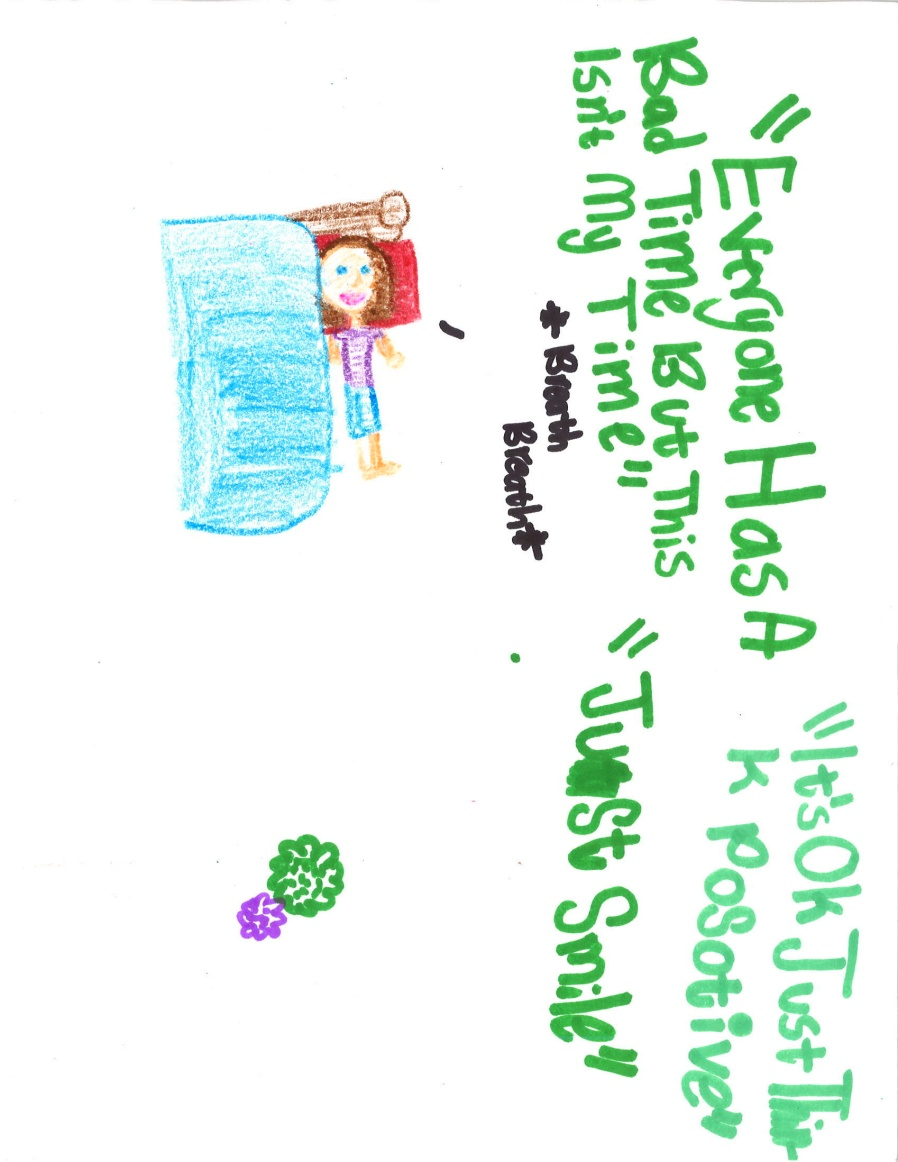 "Everyone Has A
Bad Time But This
Isn't My Time"
*Breath
Breath*
"It's Ok Just Thin
k Posotive"
"Just Smile"